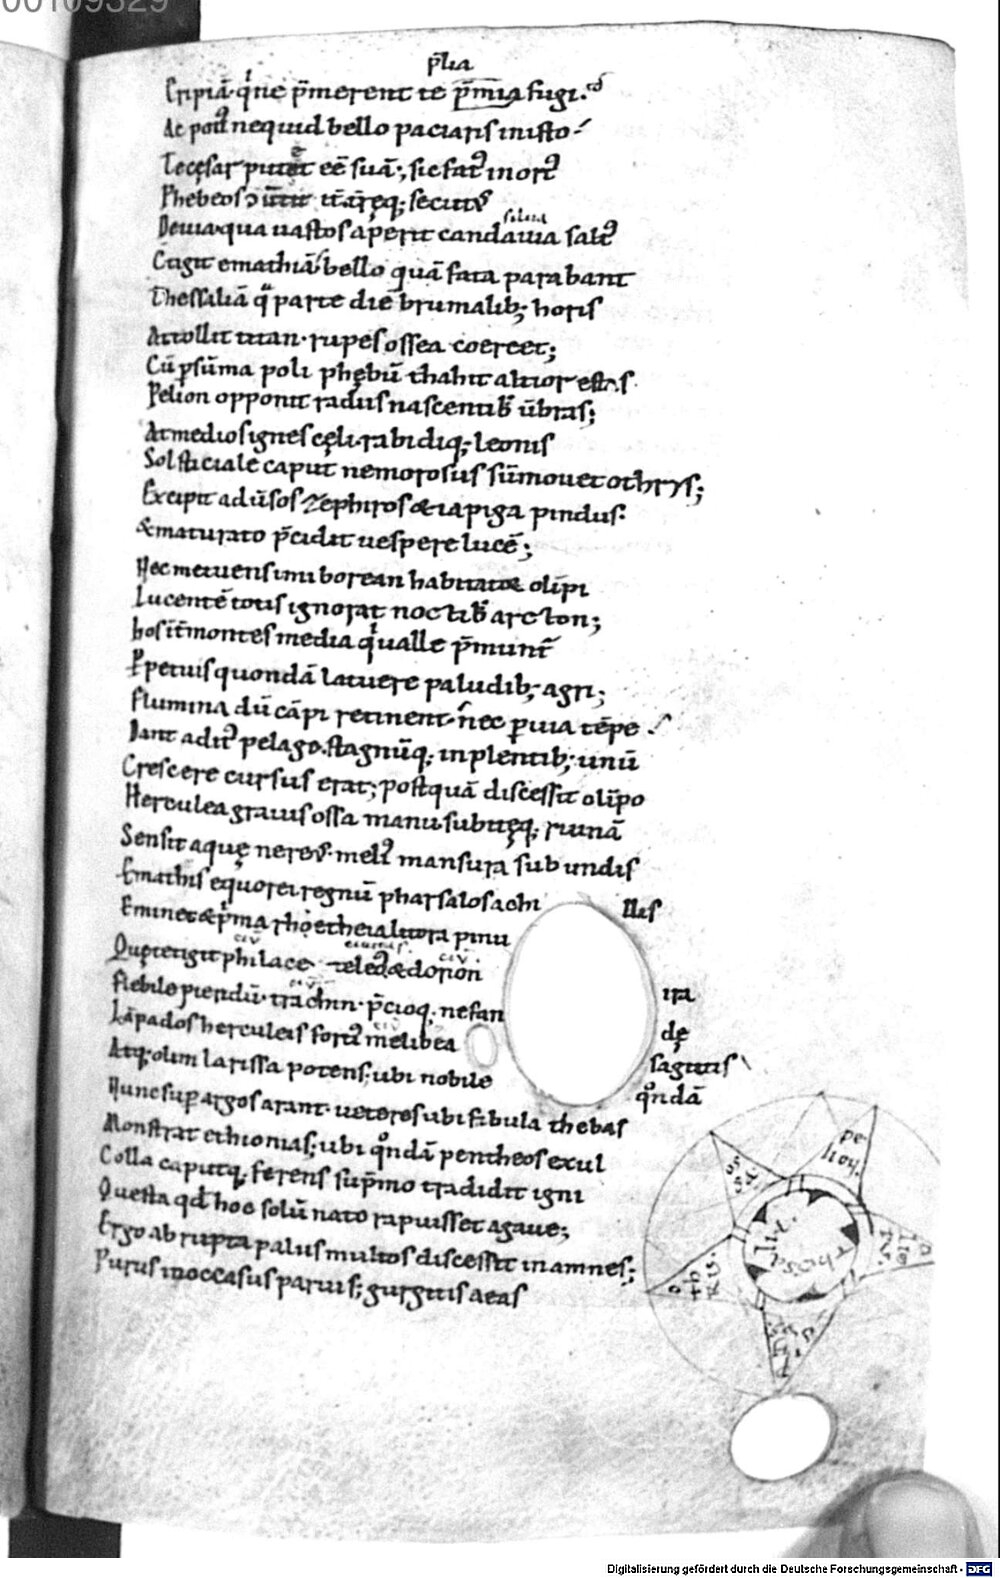 00109329
p̄lia
Eripiā· qͥne p̄merent te p̄mia fugi.
Ac potiꝰ nequid bello paciaris inisto
Te cęsar putet eē suā·; sic fatꝰ in ortꝰ
Phebeos ɔ̄uertit it̄ areq; secutꝰ
salua
Deuia· qua uastos aperit candauia saltꝰ
Ctigit emathiā· bello quā fata parabant
Thessaliā qͣ parte diē brumalib; horis
Attollit titan· rupes ossea coercet;
Cū ꝑ sūma poli phębū thahit altior estas·
Pelion opponit radiis nascentibꝰ ūbras;
At medios ignes cęli· rabidiq; leonis
Solsticiale caput nemorosus sūmouet othrys;
Excipit adūsos zephiros & iapiga pindus·
& maturato p̄cidit uespere lucē;
Nec metuens imi borean habitator olīpi
Lucentē totis ignorat noctibꝰ arcton;
hos int̄ montes media qͥ ualle p̄munt̄
Ꝑpetuis quondā latuere paludib; agri;
flumina dū cāpi retinent· nec ꝑuia tēpe
Dant aditꝰ pelago· stagnūq; inplentib; unū
Crescere cursus erat; postquā discessit olīpo
Herculea grauis ossa manu subitęq; ruinā
Sensit aquę nereꝰ· meliꝰ mansura sub undis
Emathis equorei regnū pharsalos achi llis
Eminet & p̄ma rhoetheia litora pinu
ciu̅
Quę tetigit philace teleoꝰ & dorion ira
flebile pieridū· trachin· p̄cioq; nefan dę
Lāpados herculeis fortꝰ melibea sagittis
Atq; olim larissa potens; ubi nobile qͦndā
Nunc suꝑ argos arant· ueteres ubi fabula thebas
Monstrat ethionias; ubi qͦndā pentheos exul
Colla caputq; ferens sup̄mo tradidit igni
Questa qđ hoc solū nato rapuisset agaue;
Ergo abrupta palus multos discessit in amnes;
Purus in occasus paruis; gurgitis aeas
pe lioɴ·
os sa
oth rys·
thessa lia·
Digitalisierung gefördert durch die Deutsche Forschungsgemeinschaft - DFG